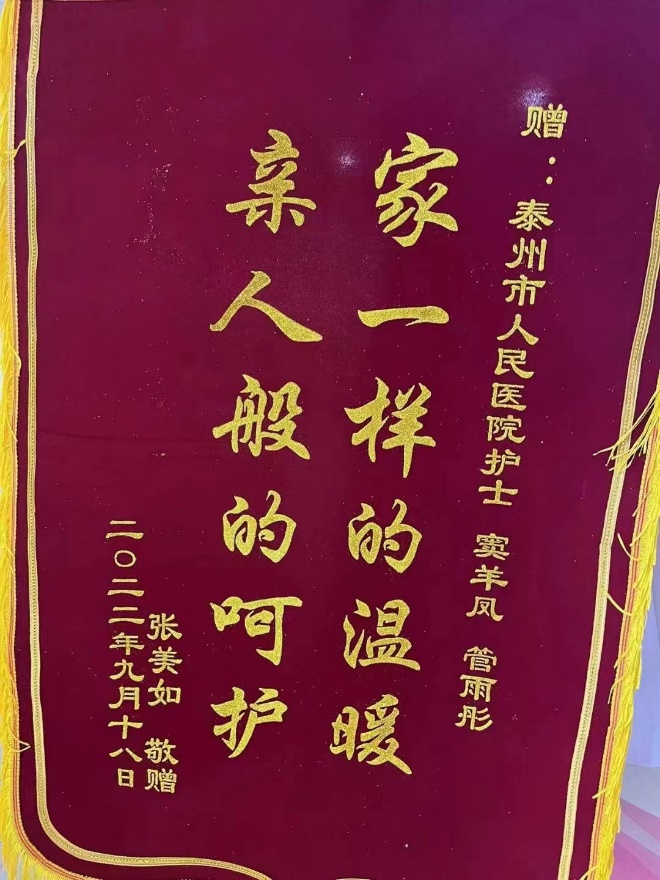 赠：泰州市人民医院护士 窦羊凤 管雨彤
家一样的温暖
亲人般的呵护
张美如 敬赠
二〇二二年九月十八日